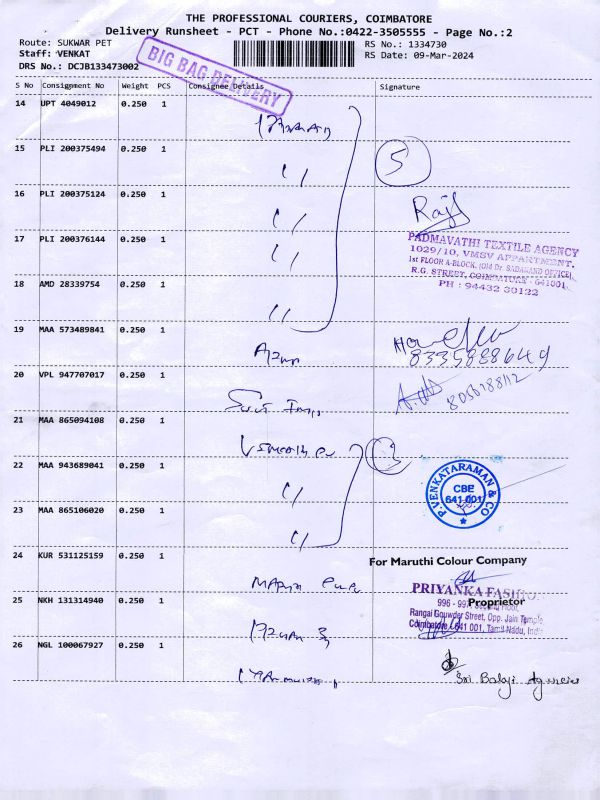 THE PROFESSIONAL COURIERS, COIMBATORE
Delivery Runsheet - PCT - Phone No.:0422-3505555 - Page No.:2
Route: SUKWAR PET
RS No.: 1334730
Staff: VENKAT
RS Date: 09-Mar-2024
DRS No.: DCJB133473002
BIG BAG DELIVERY
S No Consignment No Weight PCS Consignee Details Signature
14 UPT 4049012 0.250 1
15 PLI 200375494 0.250 1 " 5
16 PLI 200375124 0.250 1 " Raj
17 PLI 200376144 0.250 1 "
PADMAVATHI TEXTILE AGENCY
1029/10, VMSV APPARTMENT,
1st FLOOR A-BLOCK, (Old Dr. SADANAND OFFICE)
R.G. STREET, COIMBATORE - 641001.
PH : 94432 30122
18 AMD 28339754 0.250 1 "
19 MAA 573489841 0.250 1
8335888649
20 VPL 947707017 0.250 1
21 MAA 865094108 0.250 1 3
22 MAA 943689041 0.250 1 "
P.VENKATARAMAN & CO
CBE
641 001
23 MAA 865106020 0.250 1 "
24 KUR 531125159 0.250 1
For Maruthi Colour Company
PRIYANKA FASHION
Proprietor
Rangai Gouwder Street, Opp. Jain Temple
Coimbatore - 641 001, Tamil Nadu, India
25 NKH 131314940 0.250 1
26 NGL 100067927 0.250 1
Sri Balaji Agencies